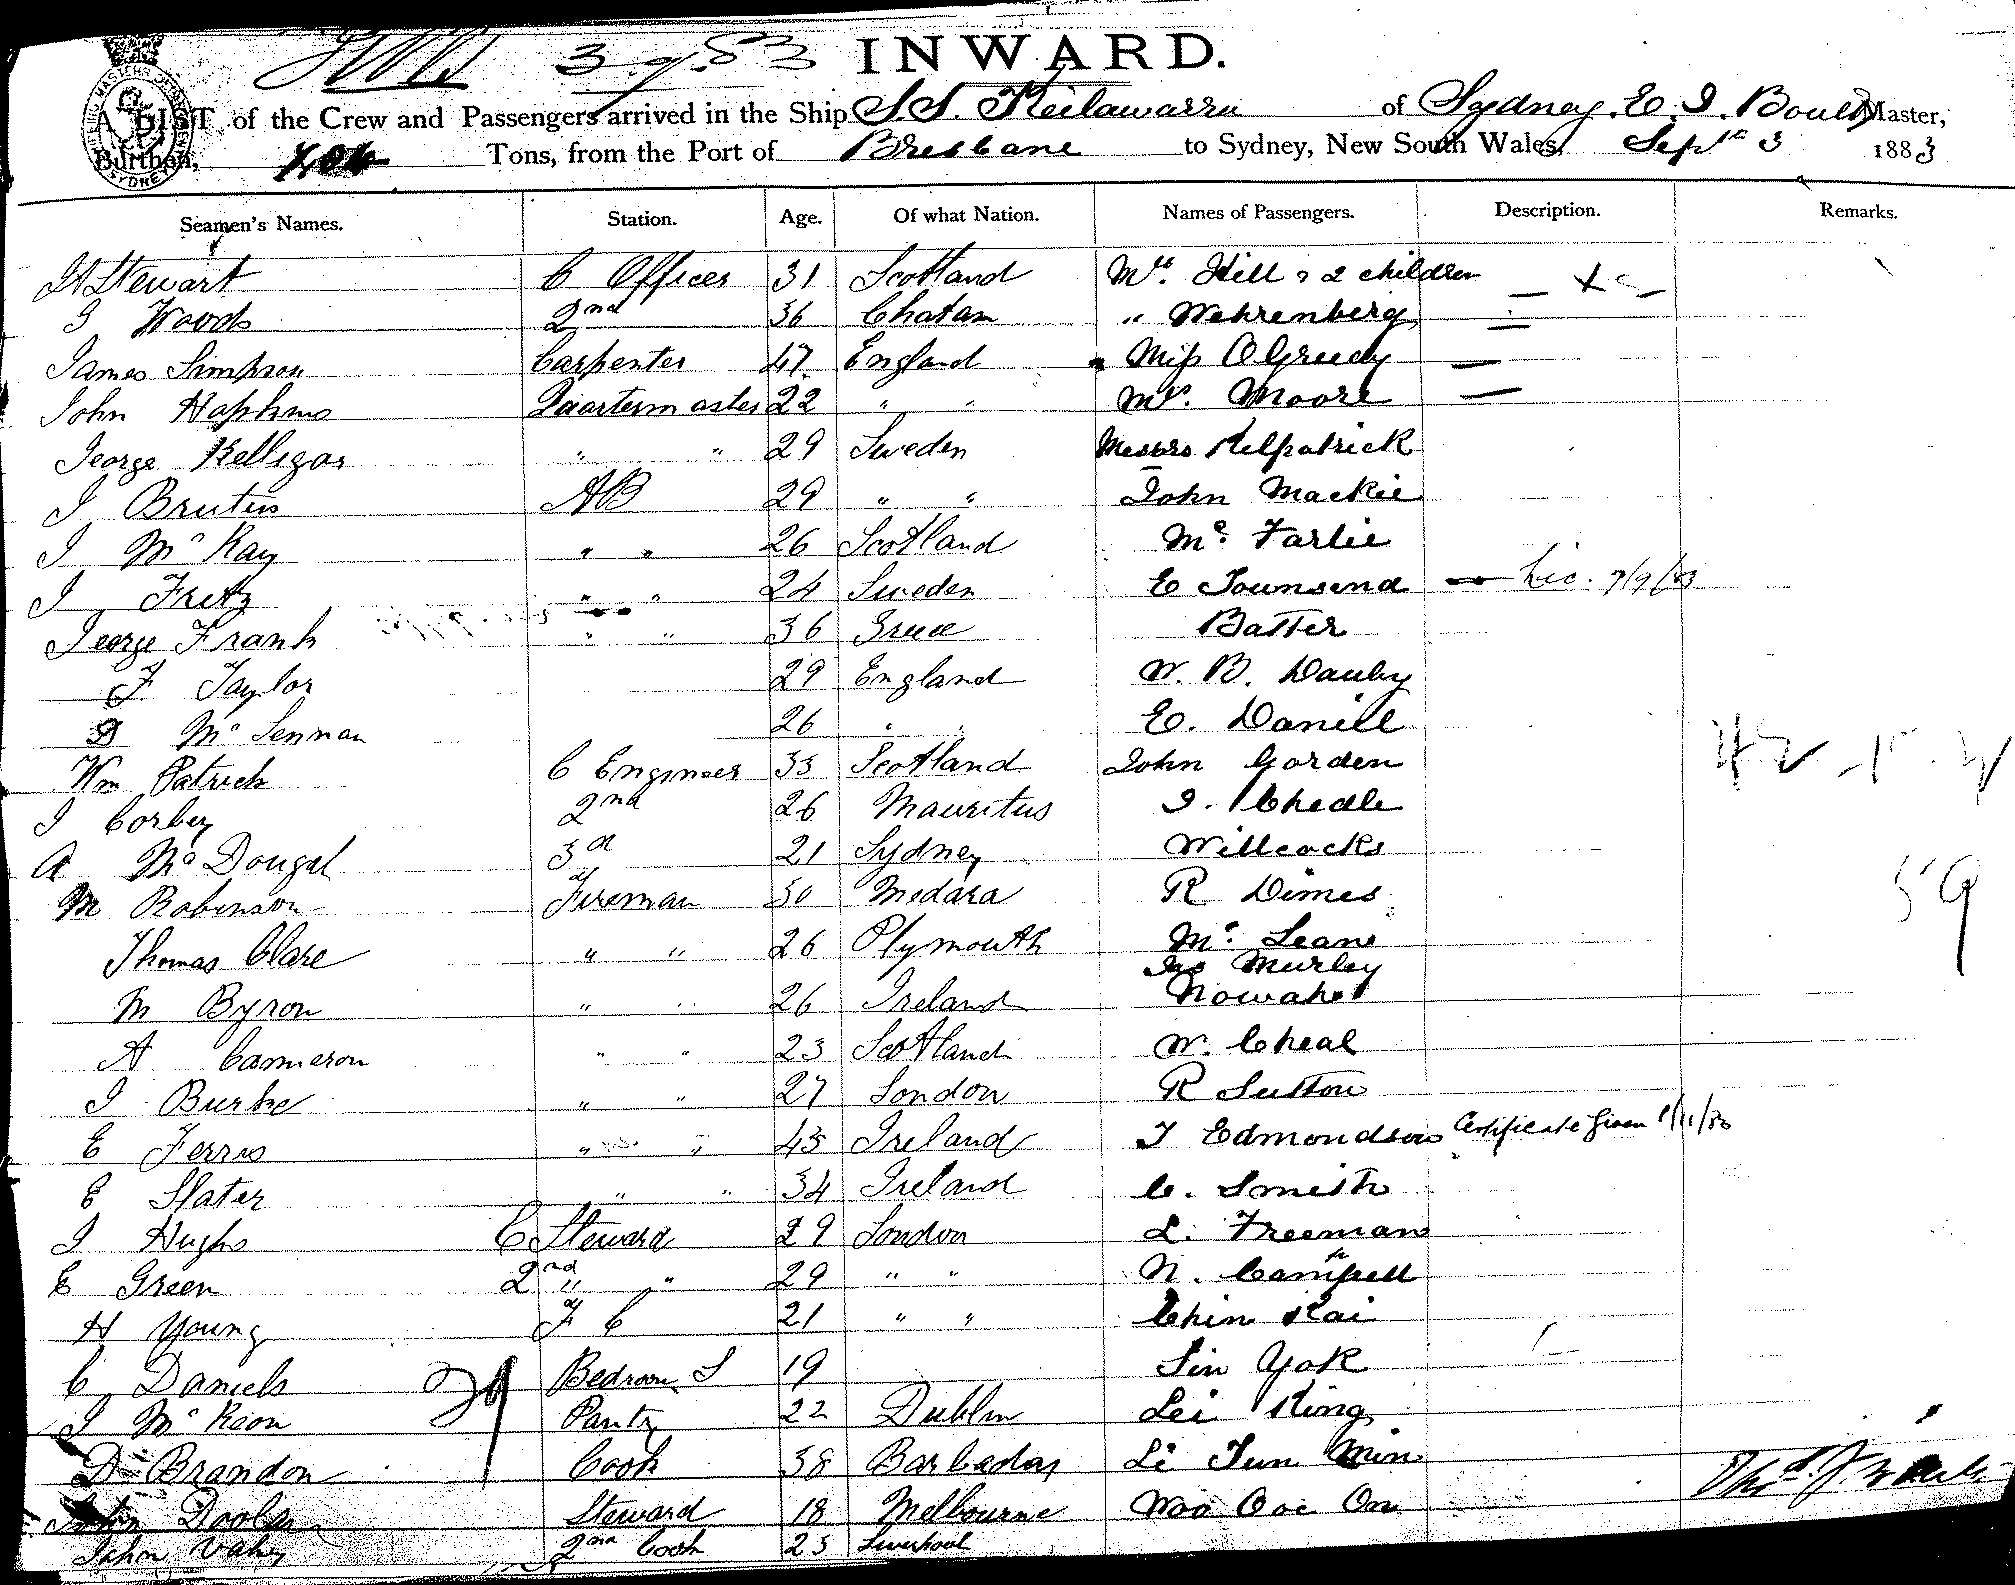 3.9.83 INWARD.
A LIST of the Crew and Passengers arrived in the Ship S.S. Keilawarra of Sydney, E. I. Boult Master,
Burthen, 486 Tons, from the Port of Brisbane to Sydney, New South Wales, Septr 3 1883
Seamen's Names. Station. Age. Of what Nation. Names of Passengers. Description. Remarks.
H Stewart C Officer 31 Scotland Mrs. Hill & 2 children
J Woods 2nd 36 Chatam " Wehrenberg
James Simpson Carpenter 47 England Miss O'Greedy
John Hopkins Quartermaster 22 " " Mrs. Moore
George Kelligar " " 29 Sweden Messrs Kilpatrick
J Brutus AB 29 " " John Mackie
J McKay " " 26 Scotland Mc Farlie
J Fretz " " 24 Sweden E Townsend Lic. 7/9/83
George Frank " " 36 Greece Batter
F Taylor 29 England W. B. Dauby
D McLennan 26 " " E. Daniell
Wm Patrick C Engineer 33 Scotland John Gorden
J Corbey 2nd 26 Mauritus J. Cheale
A McDougal 3rd 21 Sydney Willcocks
M Robinson Fireman 30 Medara R Dimes
Thomas Clare " " 26 Plymouth Mc Leane
Murley
M Byron " " 26 Ireland
A Cammeron " " 23 Scotland W. Cheal
J Burke " " 27 London R Sutton
E Ferris " " 43 Ireland J Edmondson Certificate Given 1/11/80
E Slater " " 34 Ireland C. Smith
J Hughs C Steward 29 London L. Freeman
E Green 2nd " " 29 " " N. Campell
H Young F C 21 " " Chin Kai
C Daniels Bedroom S 19 Sin Yok
J McKeon 29 Pantry 22 Dublin Lei King
D Brandon Cook 38 Barbados Li Tun Min
Doolan Steward 18 Melbourne Woo Ooe On
John Vahy 2nd Cook 23 Liverpool
59